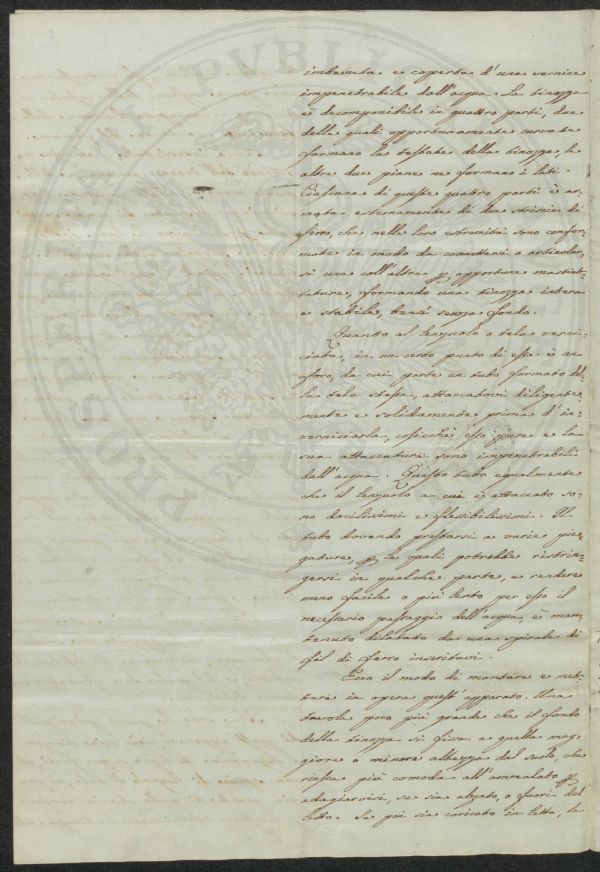 imbevuta e coperta d'una vernice
impenetrabile dall'acqua. La tinozza
è decomponibile in quattro parti, due
delle quali opportunamente curvate
formano le testate della tinozza, le
altre due piane ne formano i lati.
Ciascuna di queste quattro parti è ar=
mata esternamente di due striscie di
ferro, che nelle loro estremità sono confor=
mate in modo da connettersi o articolar=
si una coll'altra p opportune mastiet=
tature, formando una tinozza intera
e stabile, bensì senza fondo.
Quanto al lenzuolo o tela verni=
ciata, in un certo punto di essa è un
foro, da cui parte un tubo formato del=
la tela stessa, attaccatovi diligente=
mente e solidamente prima d'in=
verniciarla, cosicchè esso pure e la
sua attaccatura sono impenetrabili
dall'acqua. Questo tubo egualmente
che il lenzuolo a cui è attaccato so=
no docilissimi e flessibilissimi. Il
tubo dovendo prestarsi a varie pie=
gature, p le quali potrebbe ristrin=
gersi in qualche parte, e rendere
meno facile o più lento per esso il
necessario passaggio dell'acqua, è man=
tenuto dilatato da una spirale di
fil di ferro inseritavi.
Ecco il modo di montare e met=
tere in opera quest'apparato. Una
tavola poco più grande che il fondo
della tinozza si fissa a quella mag=
giore o minore altezza dal suolo, che
riesca più comoda all'ammalato p
adagiarvisi, se sia alzato, o fuori del
letto. Se poi sia coricato in letto, la
PROSPERITATI PVBLICAE